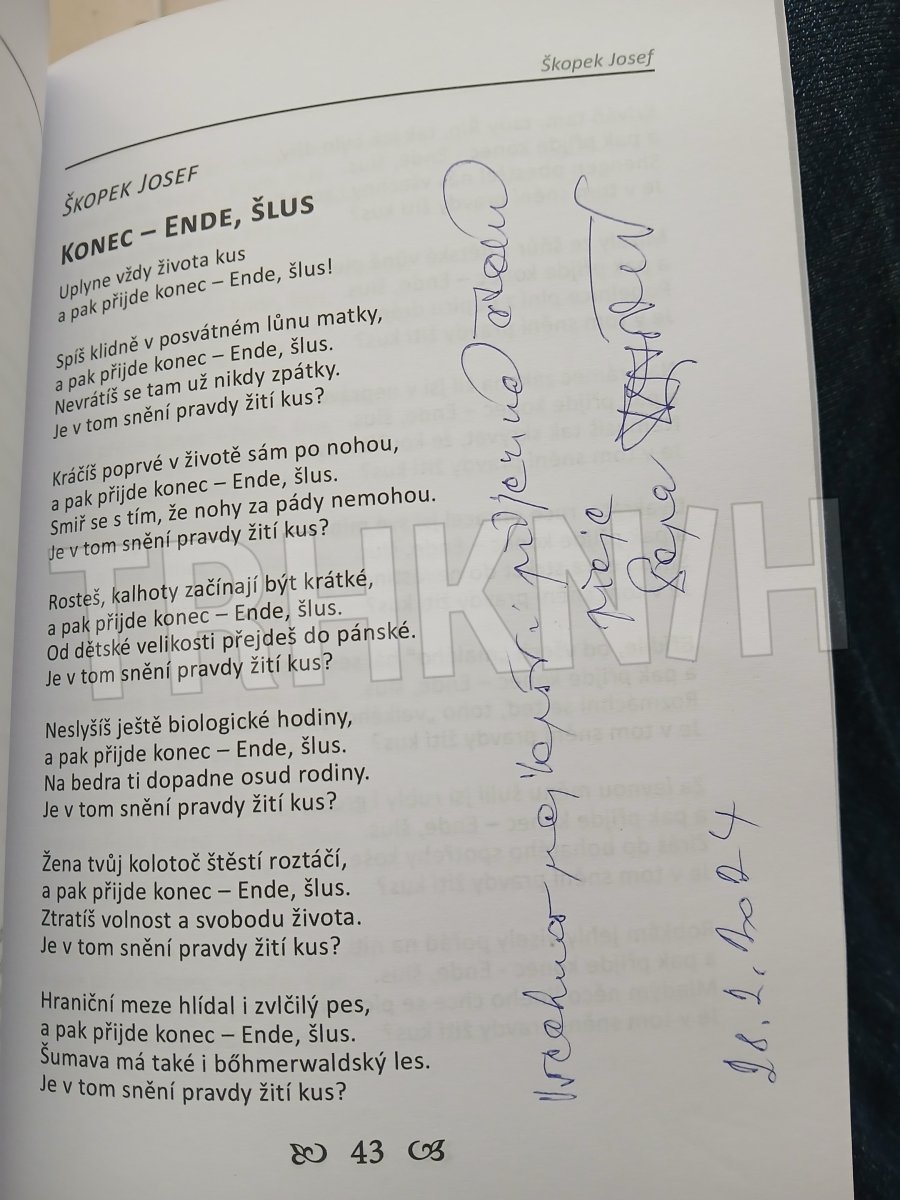 Škopek Josef
Škopek Josef
Konec – Ende, šlus
Uplyne vždy života kus
a pak přijde konec – Ende, šlus!
Spíš klidně v posvátném lůnu matky,
a pak přijde konec – Ende, šlus.
Nevrátíš se tam už nikdy zpátky.
Je v tom snění pravdy žití kus?
Kráčíš poprvé v životě sám po nohou,
a pak přijde konec – Ende, šlus.
Smiř se s tím, že nohy za pády nemohou.
Je v tom snění pravdy žití kus?
Rosteš, kalhoty začínají být krátké,
a pak přijde konec – Ende, šlus.
Od dětské velikosti přejdeš do pánské.
Je v tom snění pravdy žití kus?
Neslyšíš ještě biologické hodiny,
a pak přijde konec – Ende, šlus.
Na bedra ti dopadne osud rodiny.
Je v tom snění pravdy žití kus?
Žena tvůj kolotoč štěstí roztáčí,
a pak přijde konec – Ende, šlus.
Ztratíš volnost a svobodu života.
Je v tom snění pravdy žití kus?
Hraniční meze hlídal i zvlčilý pes,
a pak přijde konec – Ende, šlus.
Šumava má také i bőhmerwaldský les.
Je v tom snění pravdy žití kus?
43
přeje
28. 2. 2024
TRHKNIH